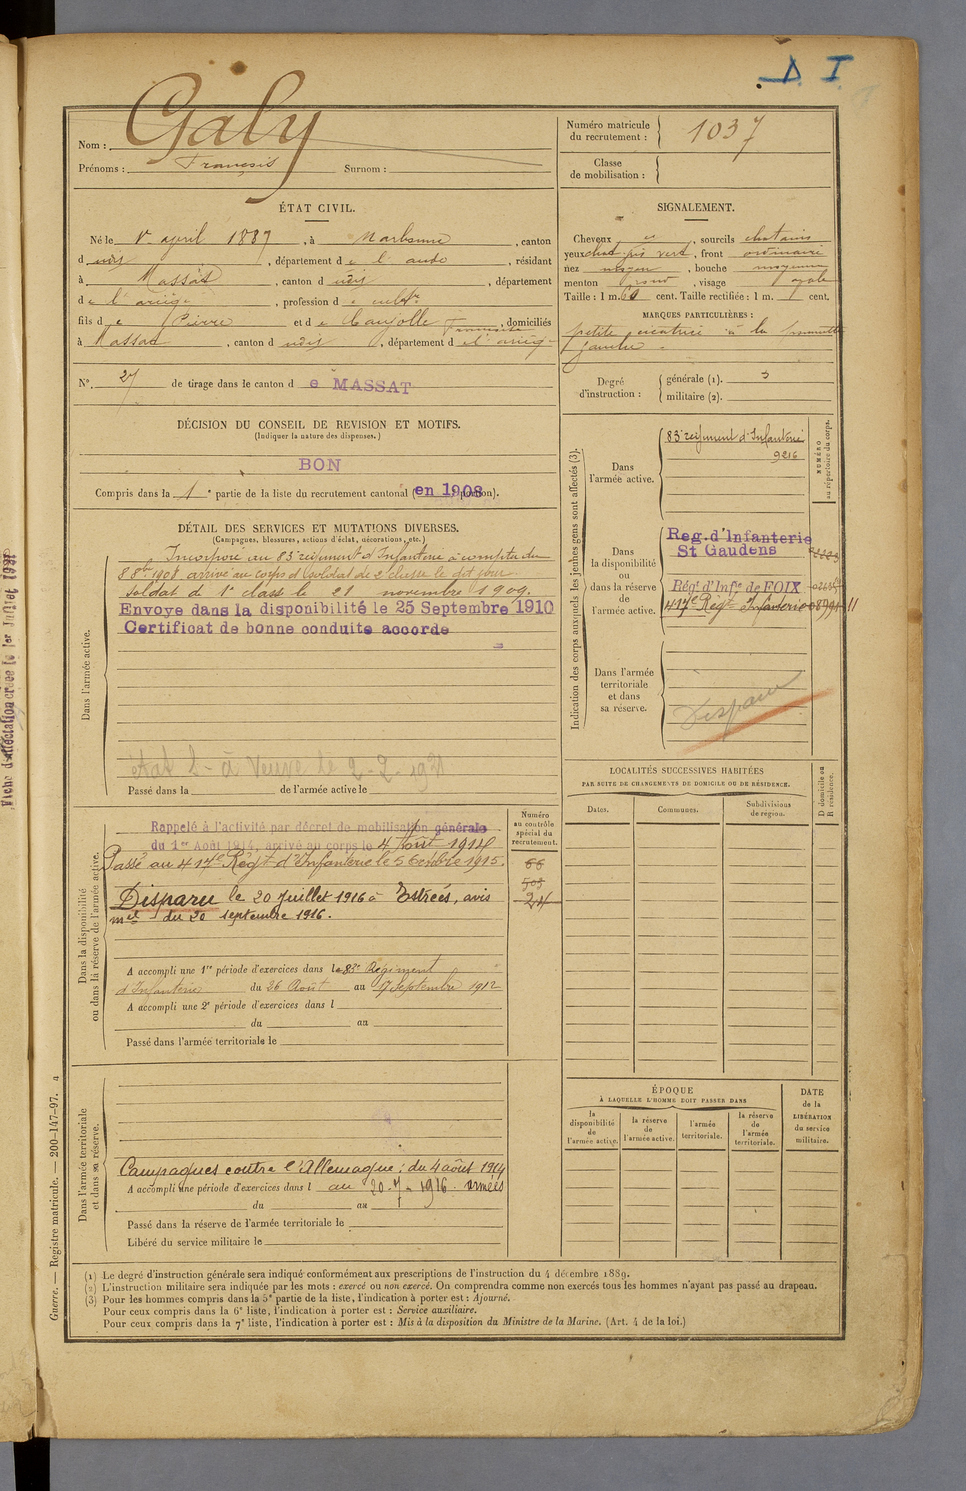 D. I.
Nom : Galy
Prénoms : François Surnom :
Numéro matricule du recrutement : 1037
Classe de mobilisation :
ÉTAT CIVIL.
Né le 1er april 1887, à Narbonne, canton
d udis, département de l'aude, résidant
à Massat, canton d udis, département
de l'ariège, profession de cultr
fils de Pierre et de Caujolle Françoise, domiciliés
à Massat, canton d udis, département de l'arieg-
No. 27 de tirage dans le canton de MASSAT
DÉCISION DU CONSEIL DE REVISION ET MOTIFS.
(Indiquer la nature des dispenses.)
BON
Compris dans la 1e partie de la liste du recrutement cantonal (en 1908 portion).
DÉTAIL DES SERVICES ET MUTATIONS DIVERSES.
(Campagnes, blessures, actions d'éclat, décorations, etc.)
Dans l'armée active.
Incorporé au 83e régiment d'Infanterie à compter du
8 8bre 1908 arrivé au corps et soldat de 2e classe le dit jour
Soldat de 1e class le 21 novembre 1909.
Envoye dans la disponibilité le 25 Septembre 1910
Certificat de bonne conduite accorde
état S- à Veuve le 2-2-1931
Passé dans la de l'armée active le
Numéro au contrôle spécial du recrutement.
Dans la disponibilité ou dans la réserve de l'armée active.
Rappelé à l'activité par décret de mobilisation générale
du 1er Août 1914, arrivé au corps le 4 Août 1914
Passé au 417e Régt d'Infanterie le 5 Octobre 1915.
66
503
24
Disparu le 20 Juillet 1916 à Estrées, avis
mel du 20 septembre 1916.
A accompli une 1re période d'exercices dans le 83e Régiment
d'Infanterie du 26 Août au 17 septembre 1912
A accompli une 2e période d'exercices dans l
du au
Passé dans l'armée territoriale le
Dans l'armée territoriale et dans sa réserve.
Campagnes contre l'Allemagne : du 4 août 1914
A accompli une période d'exercices dans l au 20-7-1916. armées
du au
Passé dans la réserve de l'armée territoriale le
Libéré du service militaire le
SIGNALEMENT.
Cheveux et, sourcils chatains
yeux chat gris vert, front ordinaire
nez moyen, bouche moyenne
menton rond, visage ovale
Taille : 1 m. 60 cent. Taille rectifiée : 1 m. cent.
MARQUES PARTICULIÈRES :
petite cicatrice à la pommette
gauche -
Degré d'instruction : générale (1). 3
militaire (2).
Indication des corps auxquels les jeunes gens sont affectés (3).
NUMÉRO au répertoire du corps.
Dans l'armée active.
83e régiment d'Infanterie
9216
Dans la disponibilité ou dans la réserve de l'armée active.
Reg. d'Infanterie
St Gaudens
Régt d'Infie de FOIX
417e Régt Infanterie 11
Dans l'armée territoriale et dans sa réserve.
Disparu
LOCALITÉS SUCCESSIVES HABITÉES
PAR SUITE DE CHANGEMENTS DE DOMICILE OU DE RÉSIDENCE.
Dates. Communes. Subdivisions de région. D domicile ou R résidence.
ÉPOQUE
À LAQUELLE L'HOMME DOIT PASSER DANS
la disponibilité de l'armée active. la réserve de l'armée active. l'armée territoriale. la réserve de l'armée territoriale.
DATE de la LIBÉRATION du service militaire.
(1) Le degré d'instruction générale sera indiqué conformément aux prescriptions de l'instruction du 4 décembre 1889.
(2) L'instruction militaire sera indiquée par les mots : exercé ou non exercé. On comprendra comme non exercés tous les hommes n'ayant pas passé au drapeau.
(3) Pour les hommes compris dans la 5e partie de la liste, l'indication à porter est : Ajourné.
Pour ceux compris dans la 6e liste, l'indication à porter est : Service auxiliaire.
Pour ceux compris dans la 7e liste, l'indication à porter est : Mis à la disposition du Ministre de la Marine. (Art. 4 de la loi.)
Guerre. — Registre matricule. — 200-147-97. 4